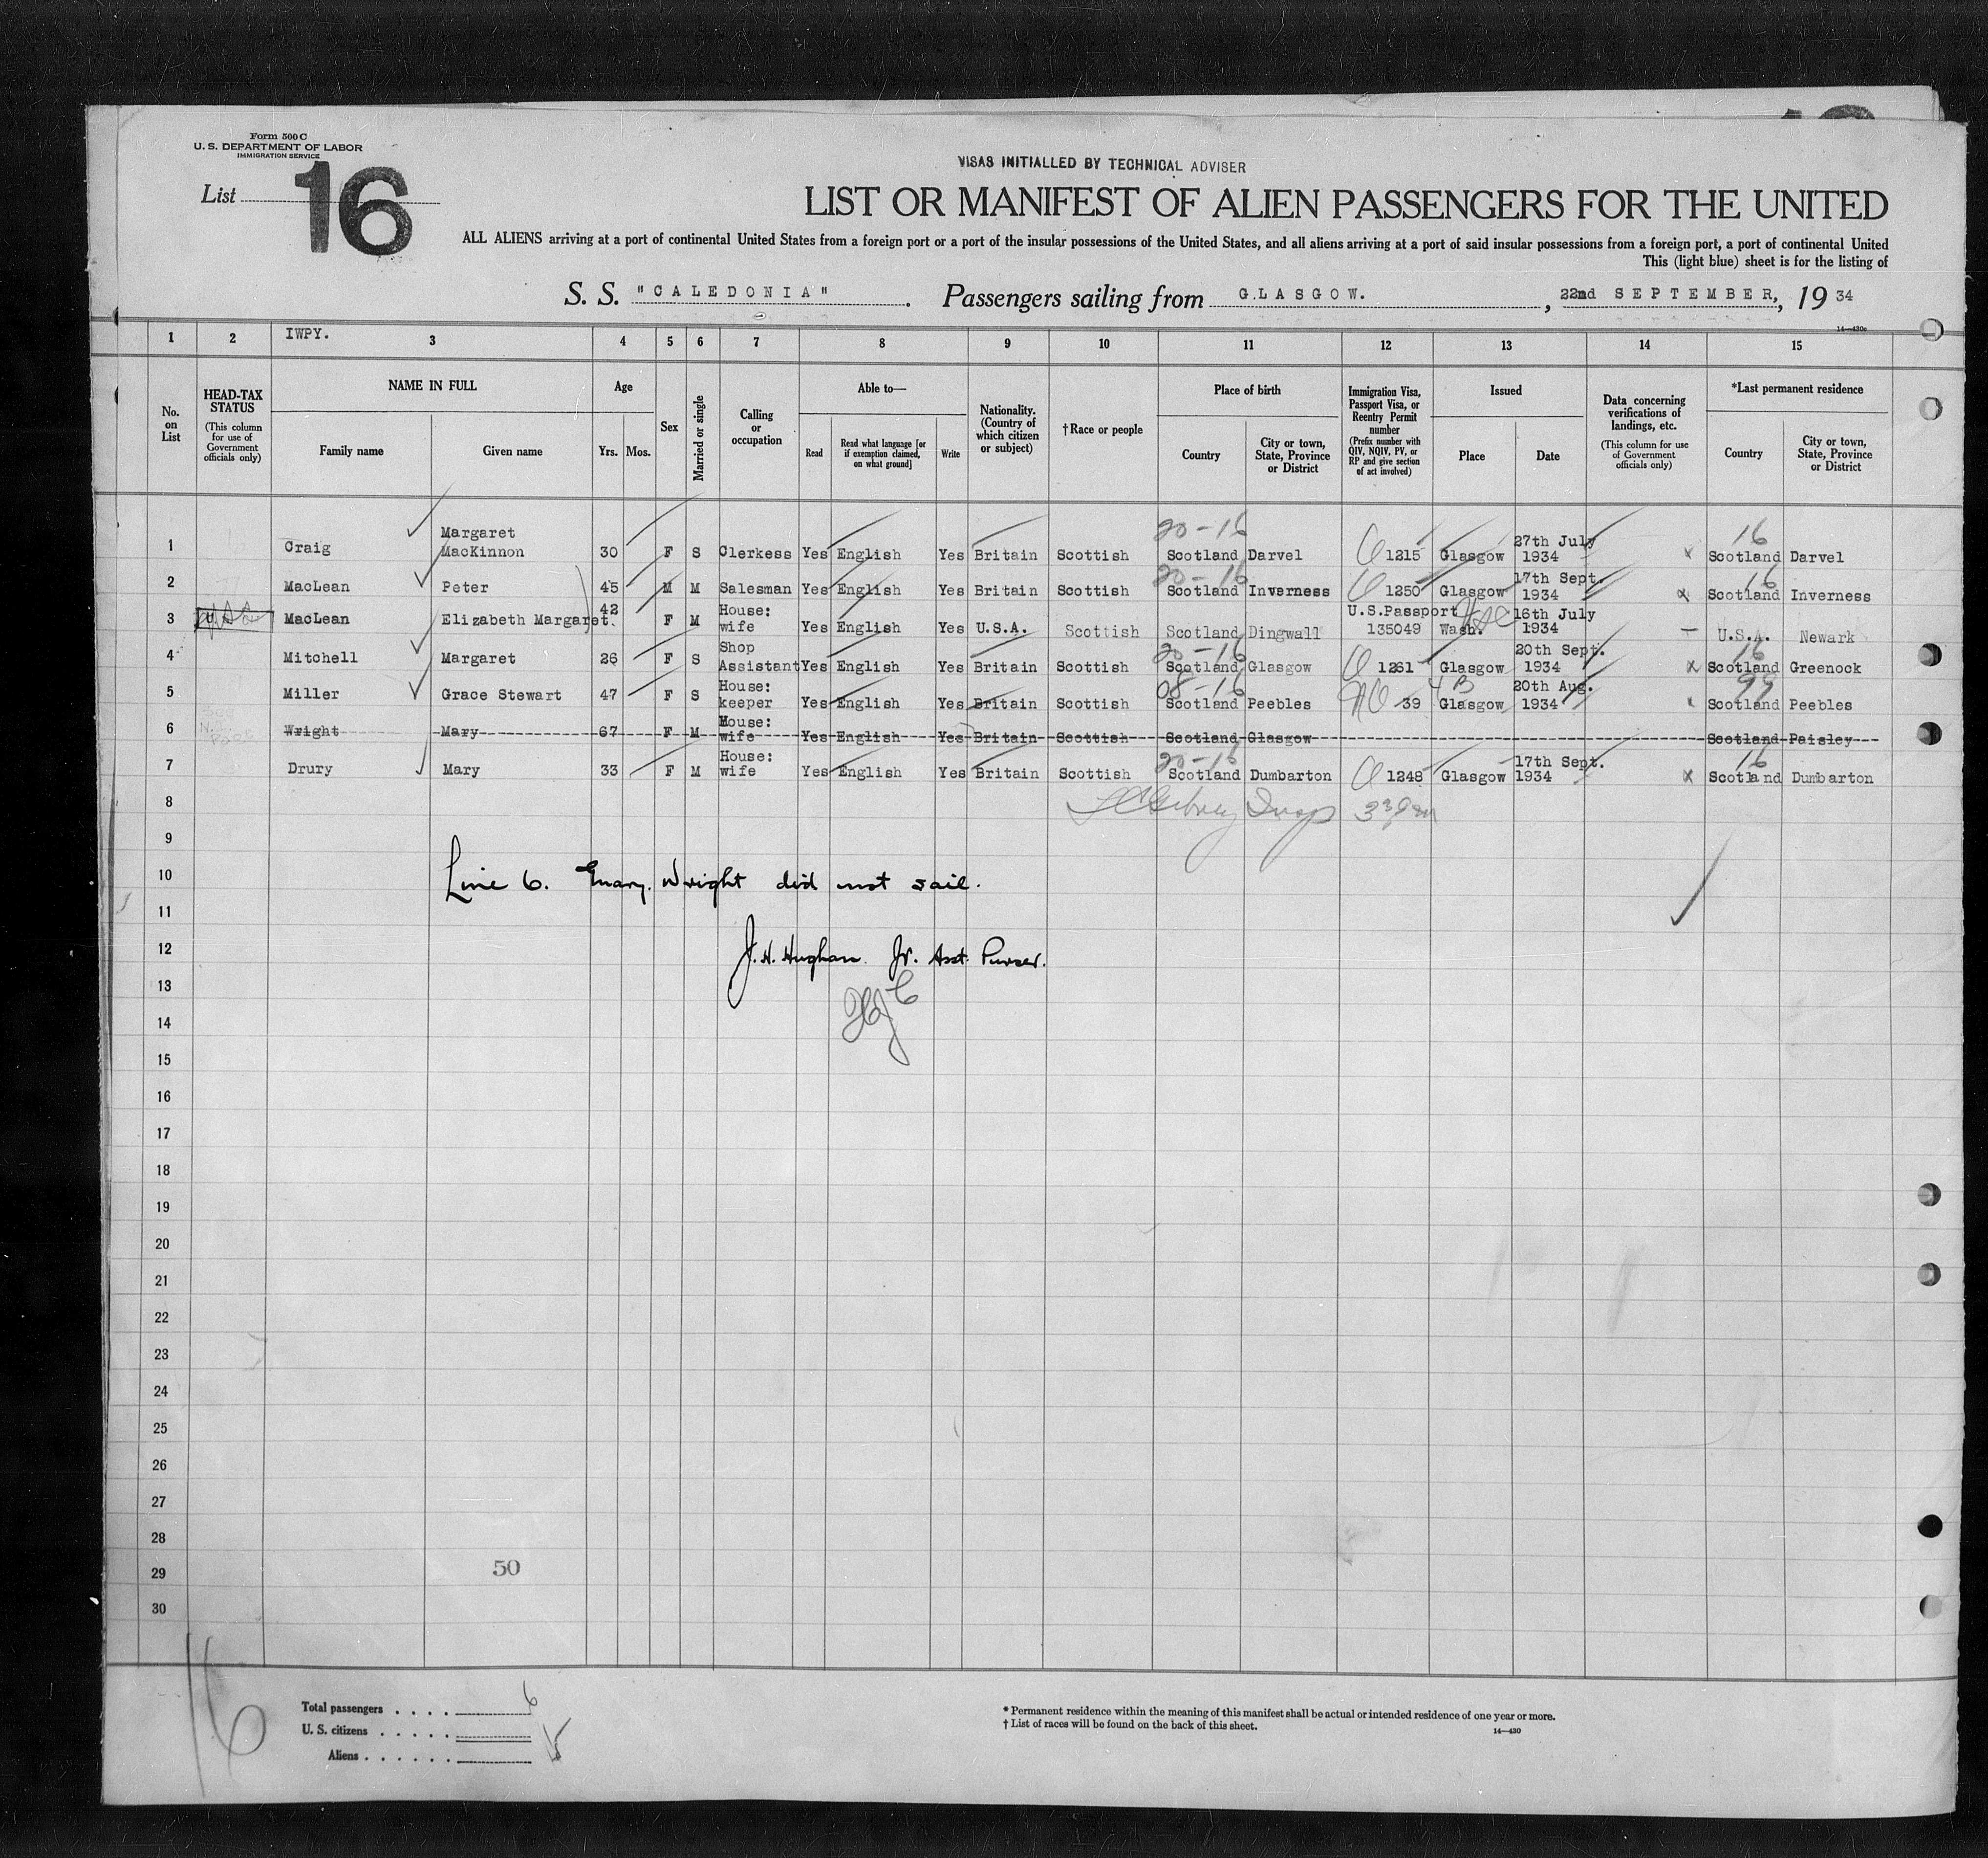 Form 500 C
U. S. DEPARTMENT OF LABOR
IMMIGRATION SERVICE
List 16
VISAS INITIALLED BY TECHNICAL ADVISER
LIST OR MANIFEST OF ALIEN PASSENGERS FOR THE UNITED
ALL ALIENS arriving at a port of continental United States from a foreign port or a port of the insular possessions of the United States, and all aliens arriving at a port of said insular possessions from a foreign port, a port of continental United
This (light blue) sheet is for the listing of
S. S. "CALEDONIA". Passengers sailing from GLASGOW., 22nd SEPTEMBER, 19 34
14—430c
1 2 IWPY. 3 4 5 6 7 8 9 10 11 12 13 14 15
No. on List
HEAD-TAX STATUS (This column for use of Government officials only)
NAME IN FULL
Family name Given name
Age
Yrs. Mos.
Sex
Married or single
Calling or occupation
Able to—
Read
Read what language [or if exemption claimed, on what ground]
Write
Nationality. (Country of which citizen or subject)
†Race or people
Place of birth
Country
City or town, State, Province or District
Immigration Visa, Passport Visa, or Reentry Permit number (Prefix number with QIV, NQIV, PV, or RP and give section of act involved)
Issued
Place Date
Data concerning verifications of landings, etc. (This column for use of Government officials only)
*Last permanent residence
Country
City or town, State, Province or District
20-16 16
1 Craig Margaret MacKinnon 30 F S Clerkess Yes English Yes Britain Scottish Scotland Darvel 1215 Glasgow 27th July 1934 x Scotland Darvel
20-16 16
2 MacLean Peter 45 M M Salesman Yes English Yes Britain Scottish Scotland Inverness 1250 Glasgow 17th Sept. 1934 x Scotland Inverness
3 MacLean Elizabeth Margaret. 42 F M House: wife Yes English Yes U.S.A. Scottish Scotland Dingwall U.S.Passport 135049 Wash. 16th July 1934 — U.S.A. Newark
20-16 16
4 Mitchell Margaret 26 F S Shop Assistant Yes English Yes Britain Scottish Scotland Glasgow 1261 Glasgow 20th Sept. 1934 x Scotland Greenock
08-16 4 B 99
5 Miller Grace Stewart 47 F S House: keeper Yes English Yes Britain Scottish Scotland Peebles 39 Glasgow 20th Aug. 1934 x Scotland Peebles
6 Wright Mary 67 F M House: wife Yes English Yes Britain Scottish Scotland Glasgow Scotland Paisley
20-16 16
7 Drury Mary 33 F M House: wife Yes English Yes Britain Scottish Scotland Dumbarton 1248 Glasgow 17th Sept. 1934 x Scotland Dumbarton
8
9
10 Line 6. Mary. Wright did not sail.
11
12 J. H. Hughan. Jr. Asst. Purser.
13
14
15
16
17
18
19
20
21
22
23
24
25
26
27
28
29 50
30
16
Total passengers . . . . 6
U. S. citizens . . . . .
Aliens . . . . . . 5
* Permanent residence within the meaning of this manifest shall be actual or intended residence of one year or more.
† List of races will be found on the back of this sheet.
14—430